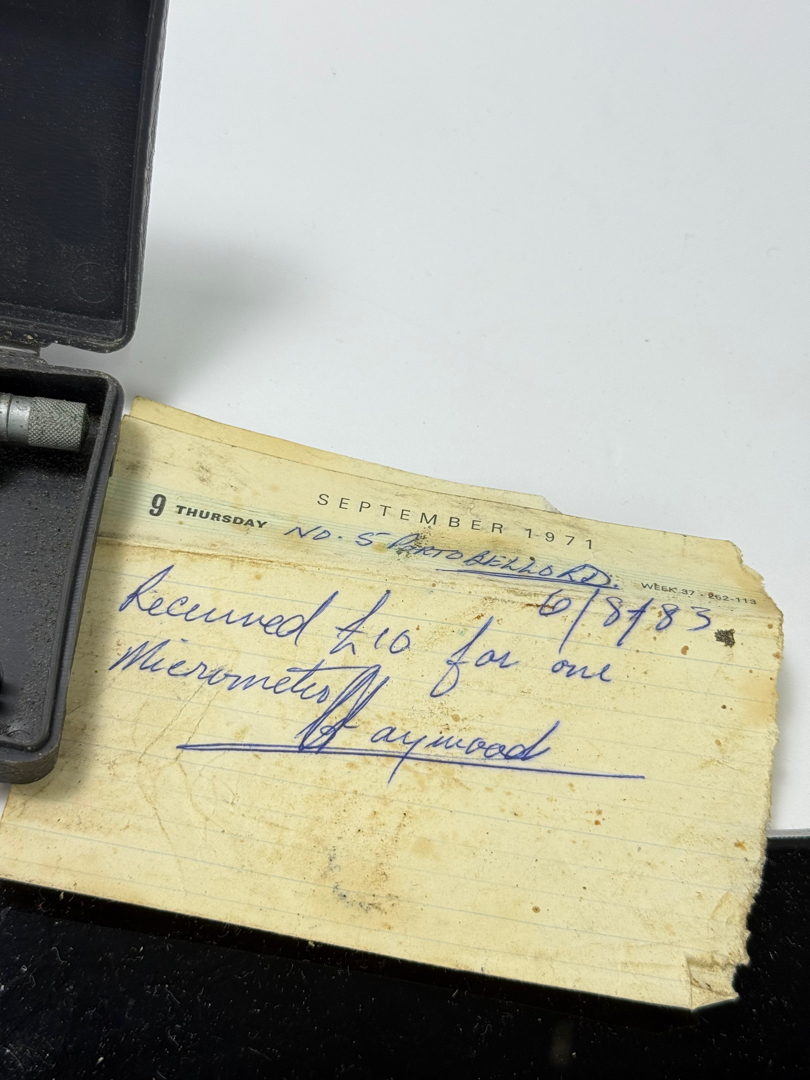 SEPTEMBER 1971
9 THURSDAY
NO. 5 PORTOBELLO RD.
WEEK 37 - 252-113
6/8/83
Received £10 for one
Micrometer
Haywood